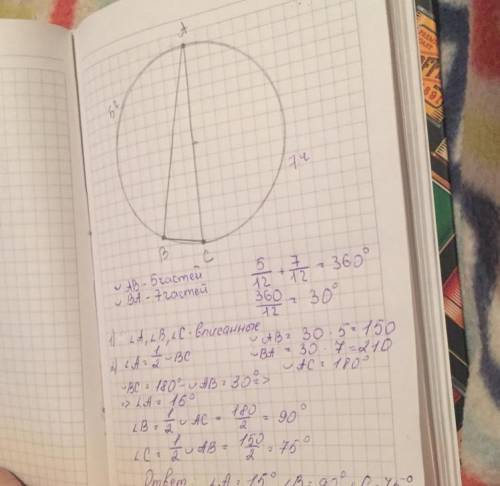 A
5ч
7ч
B
C
◡AB - 5 частей
◡BA - 7 частей
5/12 + 7/12 = 360°
360/12 = 30°
1) ∠A, ∠B, ∠C - вписанные
◡AB = 30 · 5 = 150
◡BA = 30 · 7 = 210
◡AC = 180°
∠A = 1/2 ◡BC
◡BC = 180° - ◡AB = 30° =>
=> ∠A = 16°
∠B = 1/2 ◡AC = 180/2 = 90°
∠C = 1/2 ◡AB = 150/2 = 75°
Ответ: ∠A = 15°